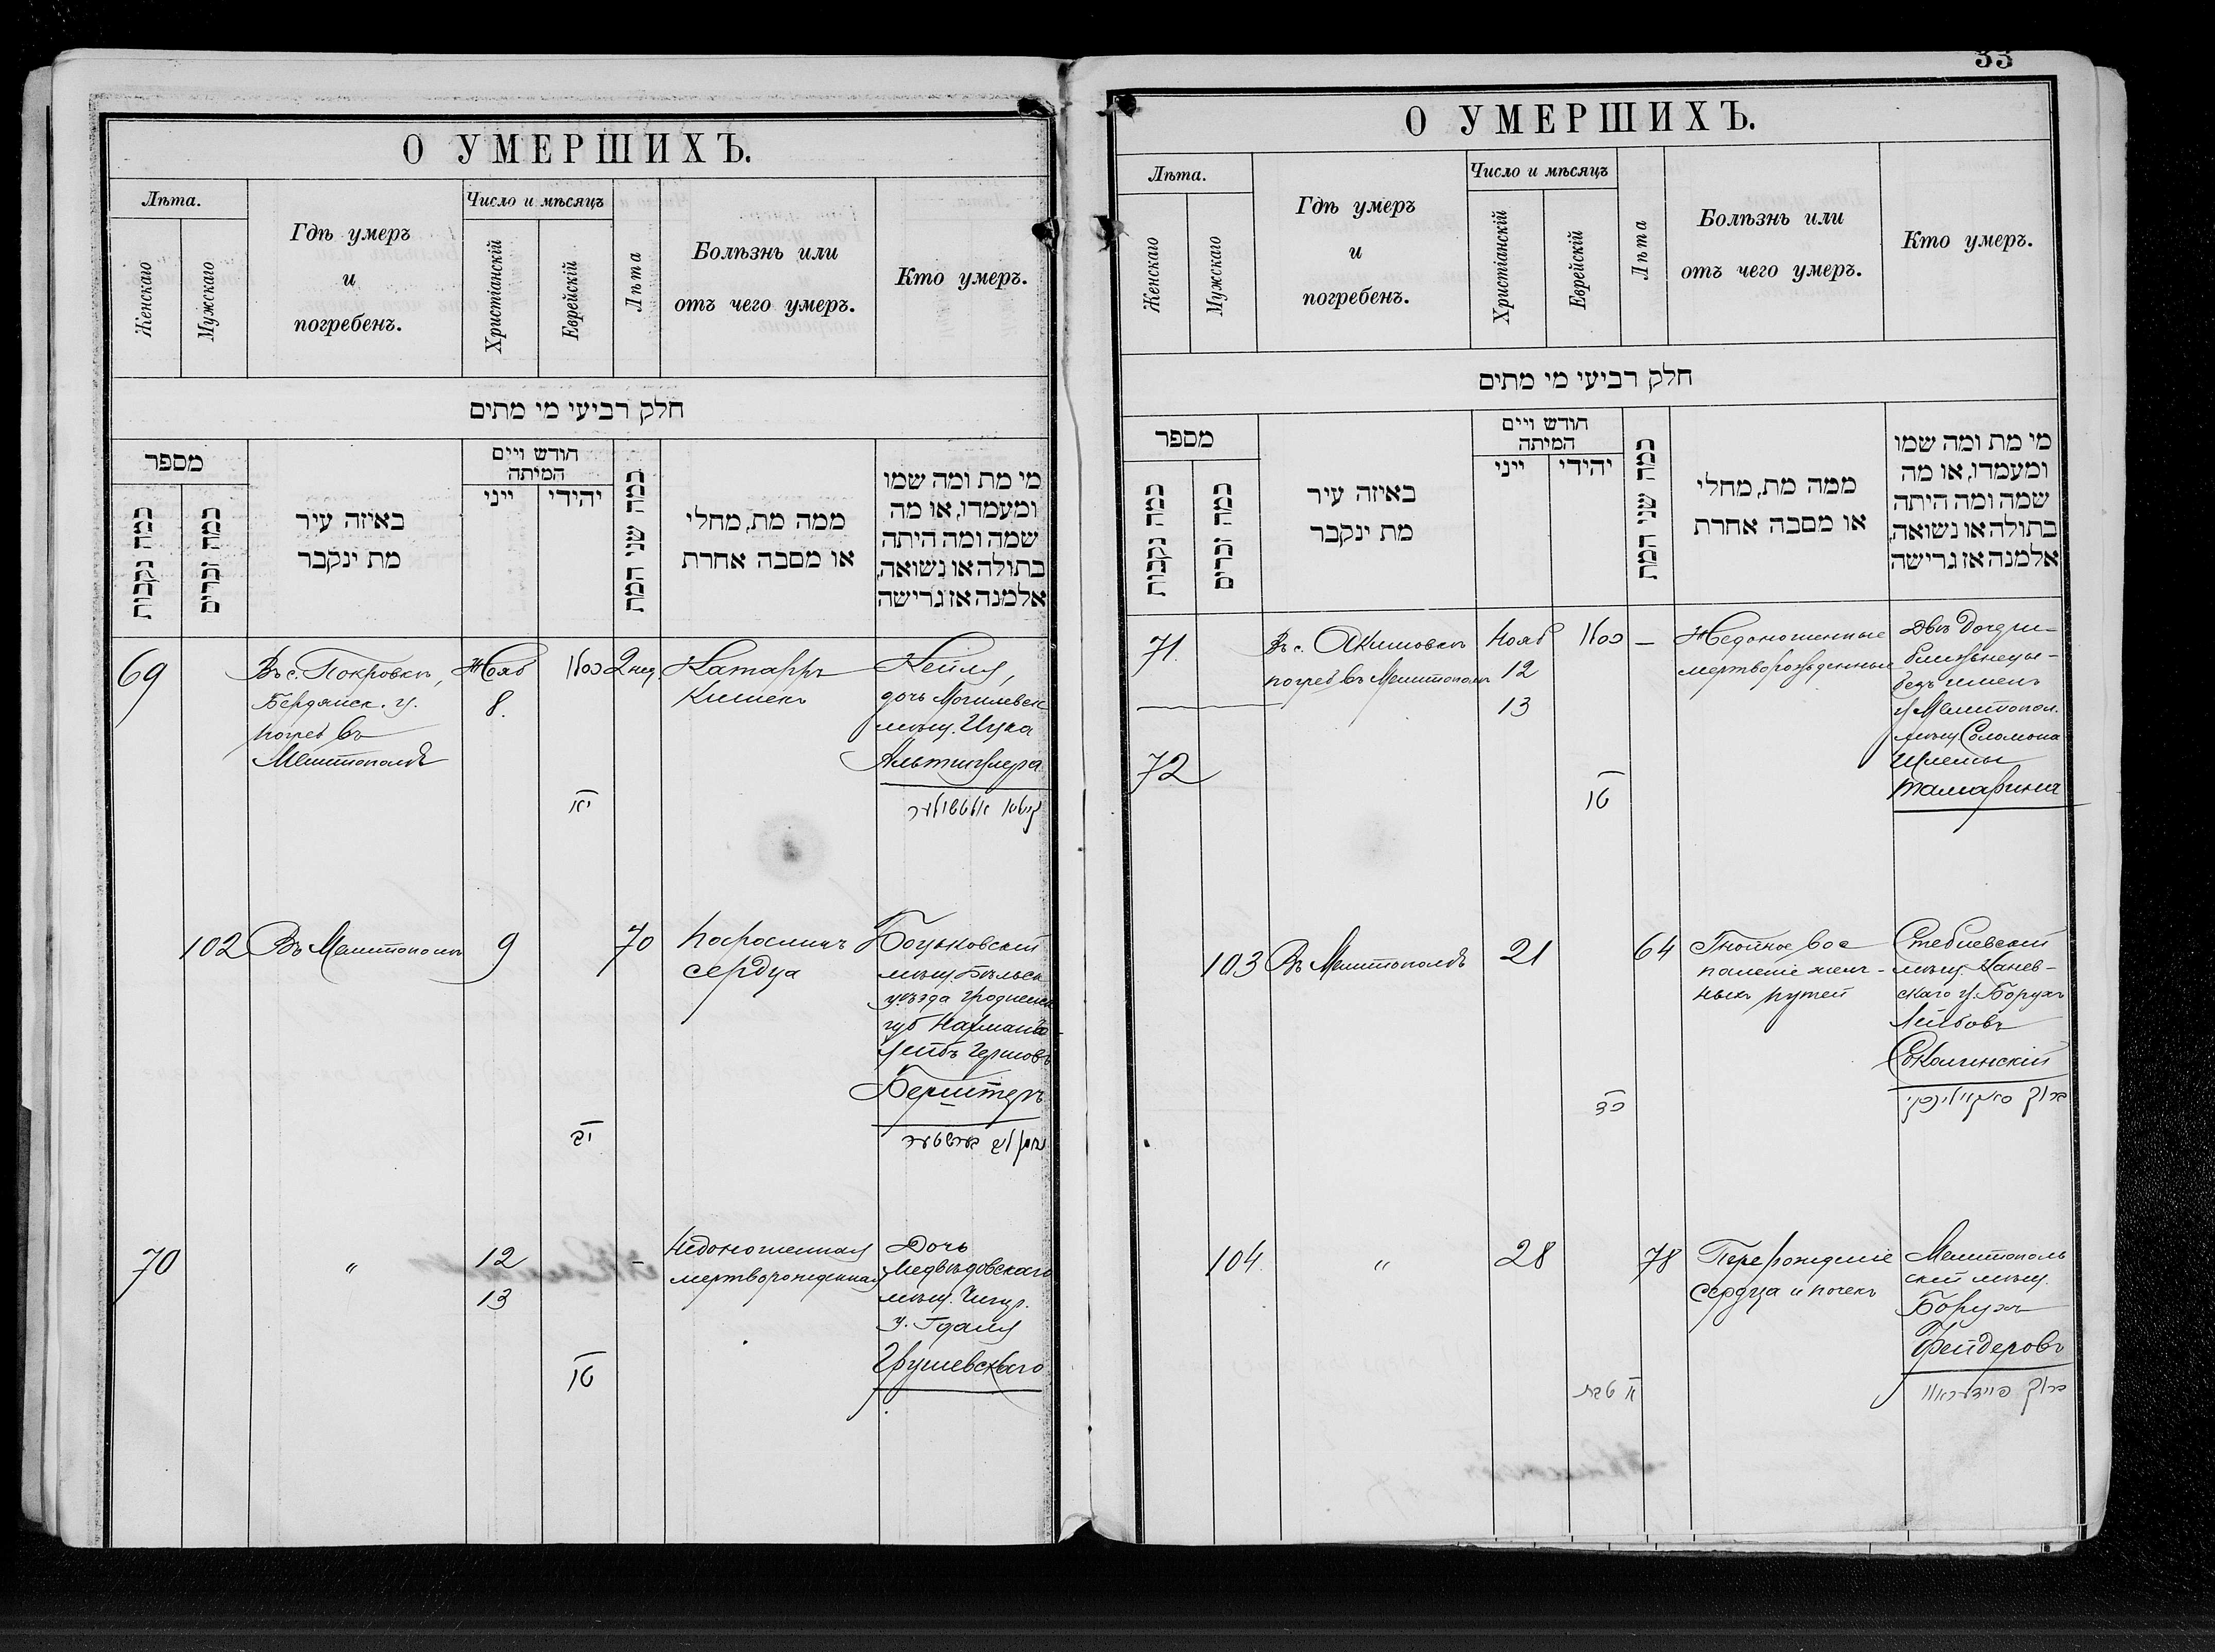 О УМЕРШИХЪ.
Лѣта.
Женскаго
Мужскаго
Гдѣ умеръ
и
погребенъ.
Число и мѣсяцъ
Христіанскій
Еврейскій
Лѣта
Болѣзнь или
отъ чего умеръ.
Кто умеръ.
חלק רביעי מי מתים
מספר
כמה נקבות
כמה זכרים
באיזה עיר
מת ינקבר
חודש ויים
המיתה
ייני
יהידי
כמה שני המת
ממה מת, מחלי
או מסבה אחרת
מי מת ומה שמו
ומעמדו, או מה
שמה ומה היתה
בתולה או נשואה,
אלמנה אז גרישה
69
Въ с. Покровкѣ,
Бердянск. у.
погреб въ
Мелитополѣ
Нояб
8.
כסלו
יא
2 нед
Катарръ
кишекъ
Кейля,
дочь Могилевск
мѣщ. Ицка
Альтшулера
102
Въ Мелитополѣ
9
יב
70
Порокъ
сердца
Боцьковскій
мѣщ. Бѣльск
уѣзда Гродненск
губ Нахманъ-
Лейбъ Гершовъ
Берштеръ
70
"
12
13
טו
-
Недоношенная
мертворожденная
Дочь
Медвѣдовскаго
мѣщ. Чигир.
у. Гдаля
Грушевскаго
33
О УМЕРШИХЪ.
Лѣта.
Женскаго
Мужскаго
Гдѣ умеръ
и
погребенъ.
Число и мѣсяцъ
Христіанскій
Еврейскій
Лѣта
Болѣзнь или
отъ чего умеръ.
Кто умеръ.
חלק רביעי מי מתים
מספר
כמה נקבות
כמה זכרים
באיזה עיר
מת ינקבר
חודש ויים
המיתה
ייני
יהידי
כמה שני המת
ממה מת, מחלי
או מסבה אחרת
מי מת ומה שמו
ומעמדו, או מה
שמה ומה היתה
בתולה או נשואה,
אלמנה אז גרישה
71.
72
Въ с. Акимовкѣ
погреб въ Мелитополѣ
Нояб
12
13
כסלו
טו
—
Недоношенные
мертворожденные
Двѣ дочери-
близнецы-
безъ имени
Мелитопол.
мѣщ Соломона
Шлемы
Тамаркина
103
Въ Мелитополѣ
21
כד
64
Гнойное вос
паленіе желч-
ныхъ путей
Стеблевскій
мѣщ. Канев-
скаго у. Борухъ
Лейбовъ
Соколинскій
104.
"
28
א טבת
78
Перерожденіе
сердца и почекъ
Мелитополь
скій мѣщ.
Борухъ
Фейдеровъ
ברוך פיידעראוו